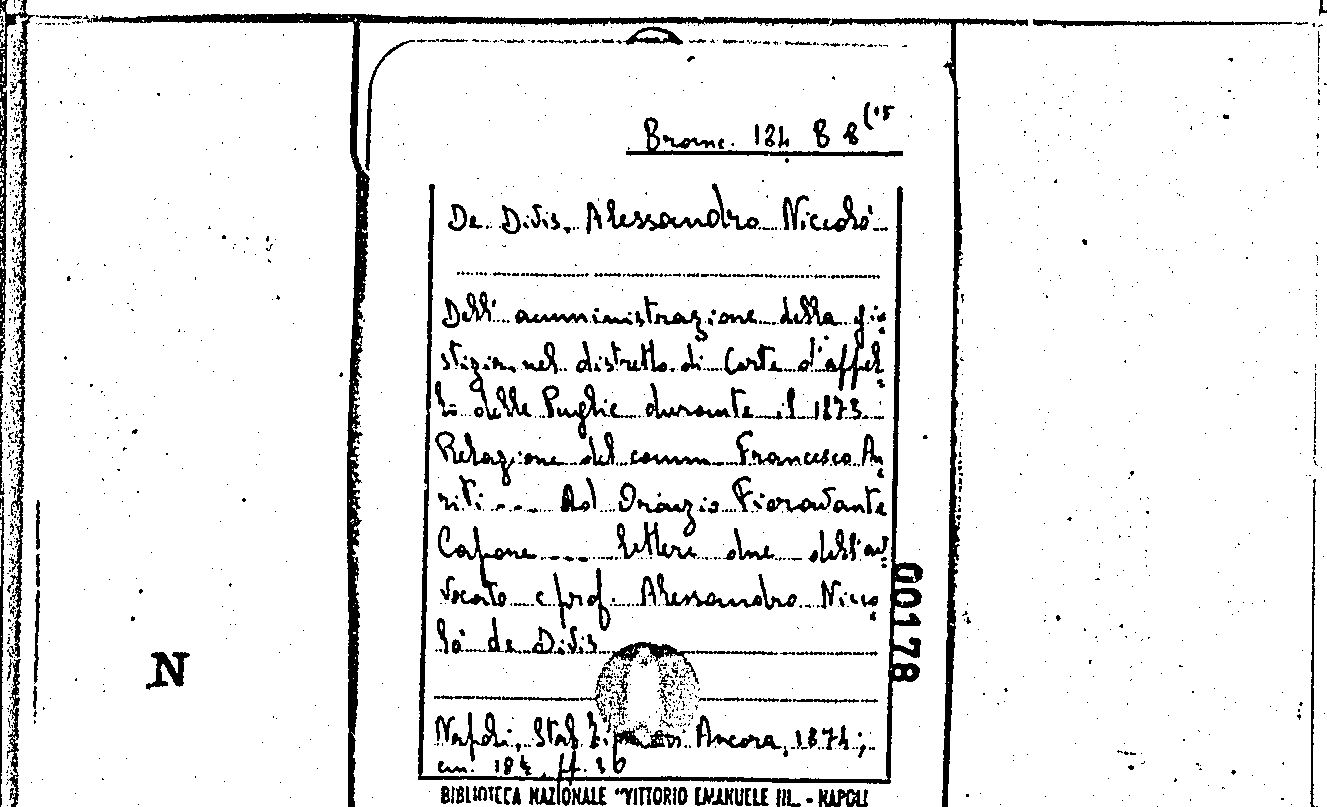 Brone. 184 B 8 (15
De Divis. Alessandro Niccolò
Dell' amministrazione della giu
stizia nel distretto di Corte d'appel
lo delle Puglie durante il 1873
Relazione del comm Francesco An
riti... Ad Orazio Fioravante
Capone... lettere due dell'av
vocato e prof. Alessandro Nicco
lò de Divis
Napoli, Stab. Ancora, 1874;
cm. 18½, pp. 36
BIBLIOTECA NAZIONALE "VITTORIO EMANUELE III„ - NAPOLI
00178
N